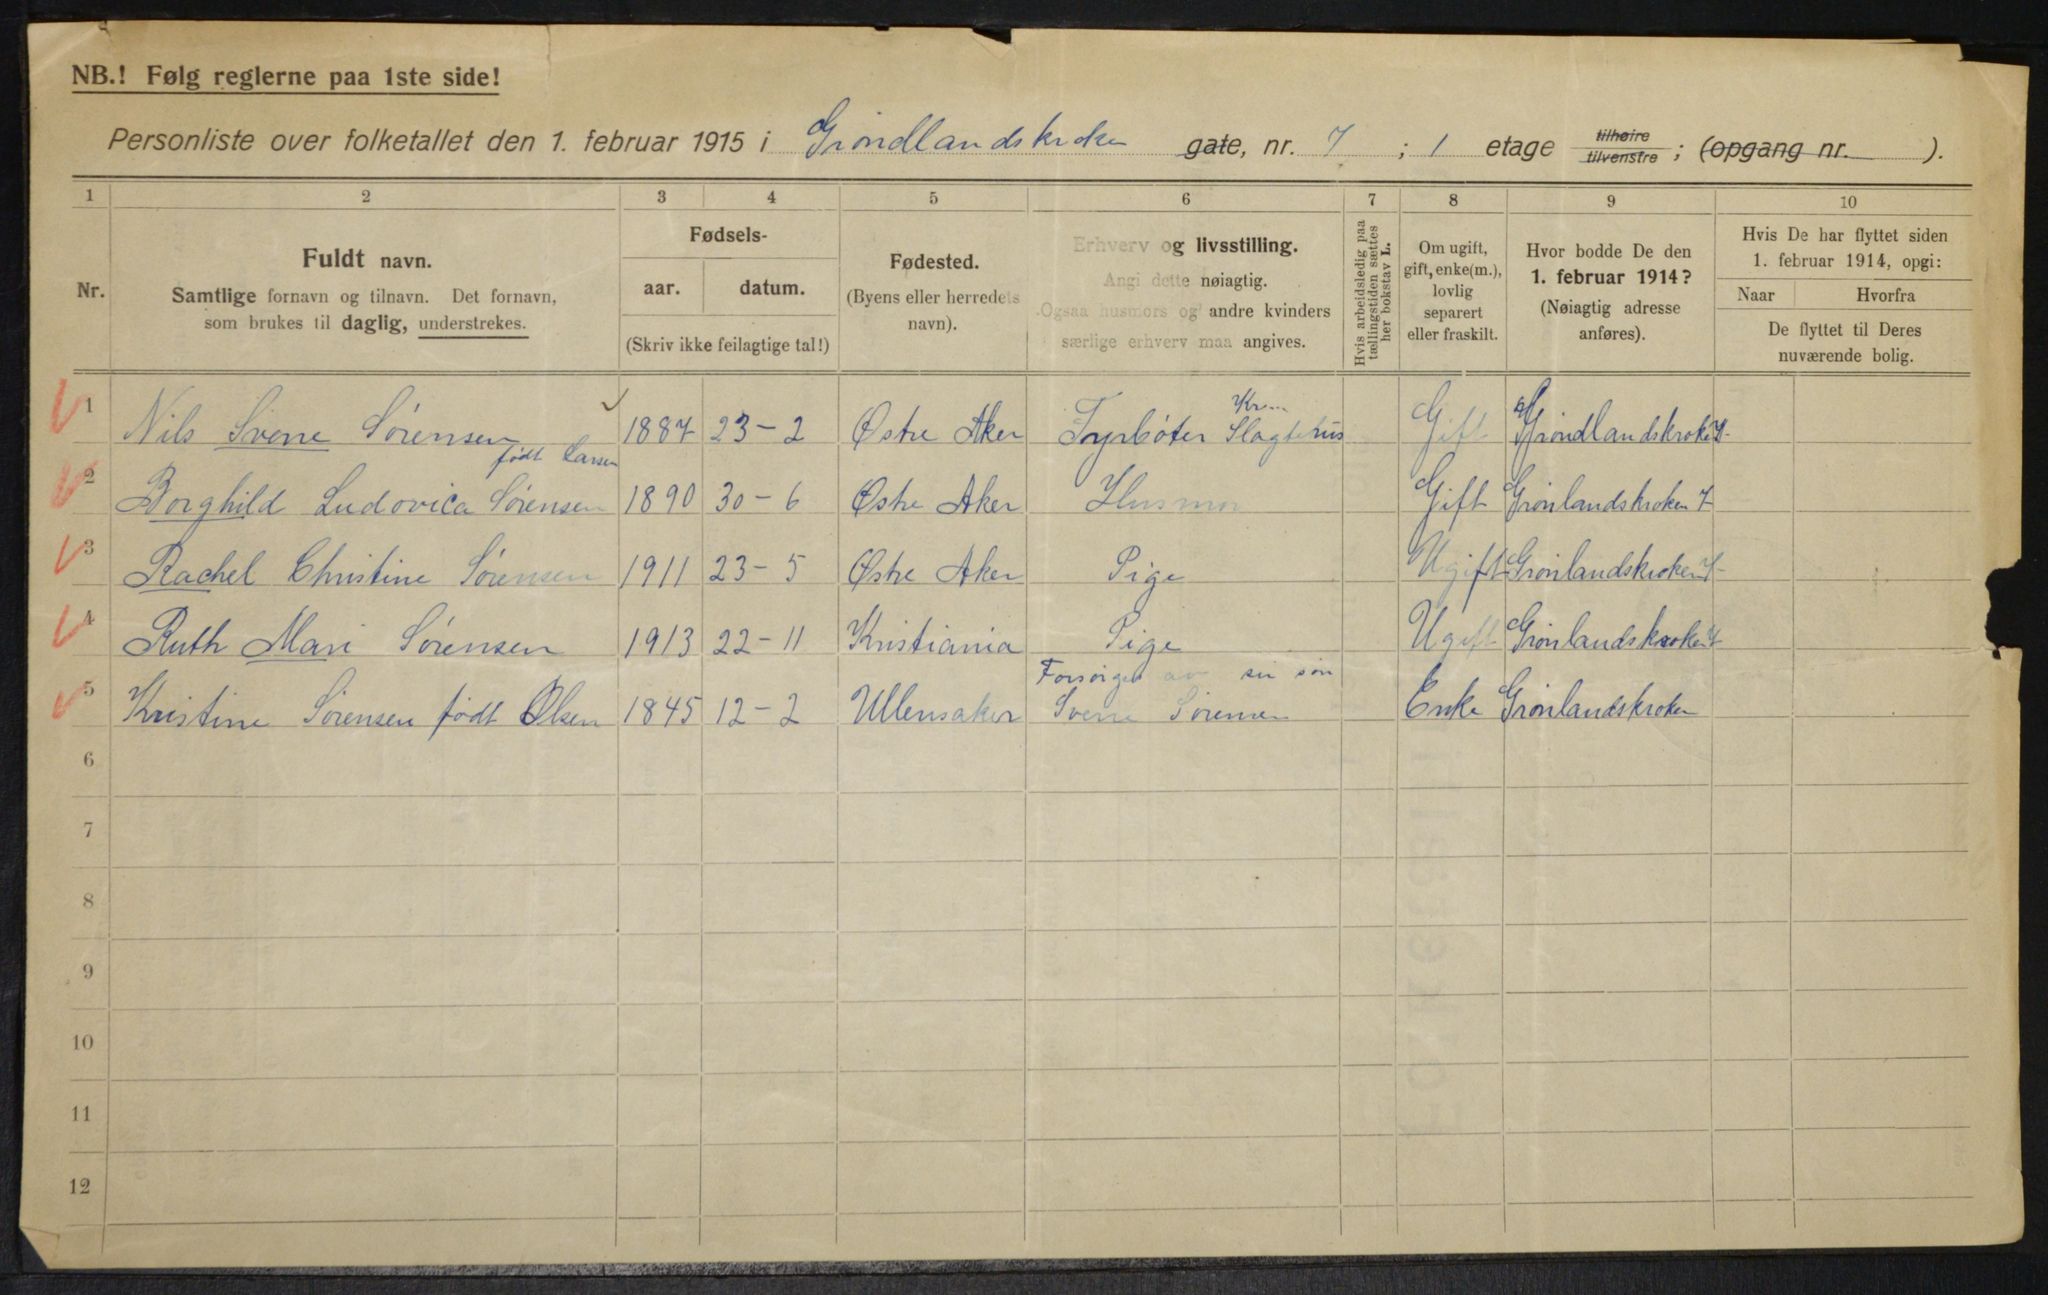 NB.! Følg reglerne paa 1ste side!
Personliste over folketallet den 1. februar 1915 i Grøndlandskroken gate, nr. 7 ; 1 etage tilhøire tilvenstre ; (opgang nr. ).
1 2 3 4 5 6 7 8 9 10
Nr.
Fuldt navn.
Samtlige fornavn og tilnavn. Det fornavn,
som brukes til daglig, understrekes.
Fødsels-
aar. datum.
(Skriv ikke feilagtige tal!)
Fødested.
(Byens eller herredets
navn).
Erhverv og livsstilling.
Angi dette nøiagtig.
Ogsaa husmors og andre kvinders
særlige erhverv maa angives.
Hvis arbeidsledig paa
tællingstiden sættes
her bokstav L.
Om ugift,
gift, enke(m.),
lovlig
separert
eller fraskilt.
Hvor bodde De den
1. februar 1914?
(Nøiagtig adresse
anføres).
Hvis De har flyttet siden
1. februar 1914, opgi:
Naar Hvorfra
De flyttet til Deres
nuværende bolig.
1 Nils Sverre Sørensen 1887 23-2 Østre Aker Fyrbøter Slagtehus Gift Grøndlandskroken 7
født Larsen
2 Borghild Ludovica Sørensen 1890 30-6 Østre Aker Husmor Gift Grønlandskroken 7
3 Rachel Christine Sørensen 1911 23-5 Østre Aker Pige Ugift Grønlandskroken 7
4 Ruth Mari Sørensen 1913 22-11 Kristiania Pige Ugift Grønlandskroken 7
Forsørges av sin søn
5 Kristine Sørensen født Olsen 1845 12-2 Ullensaker Sverre Sørensen Enke Grønlandskroken
6
7
8
9
10
11
12